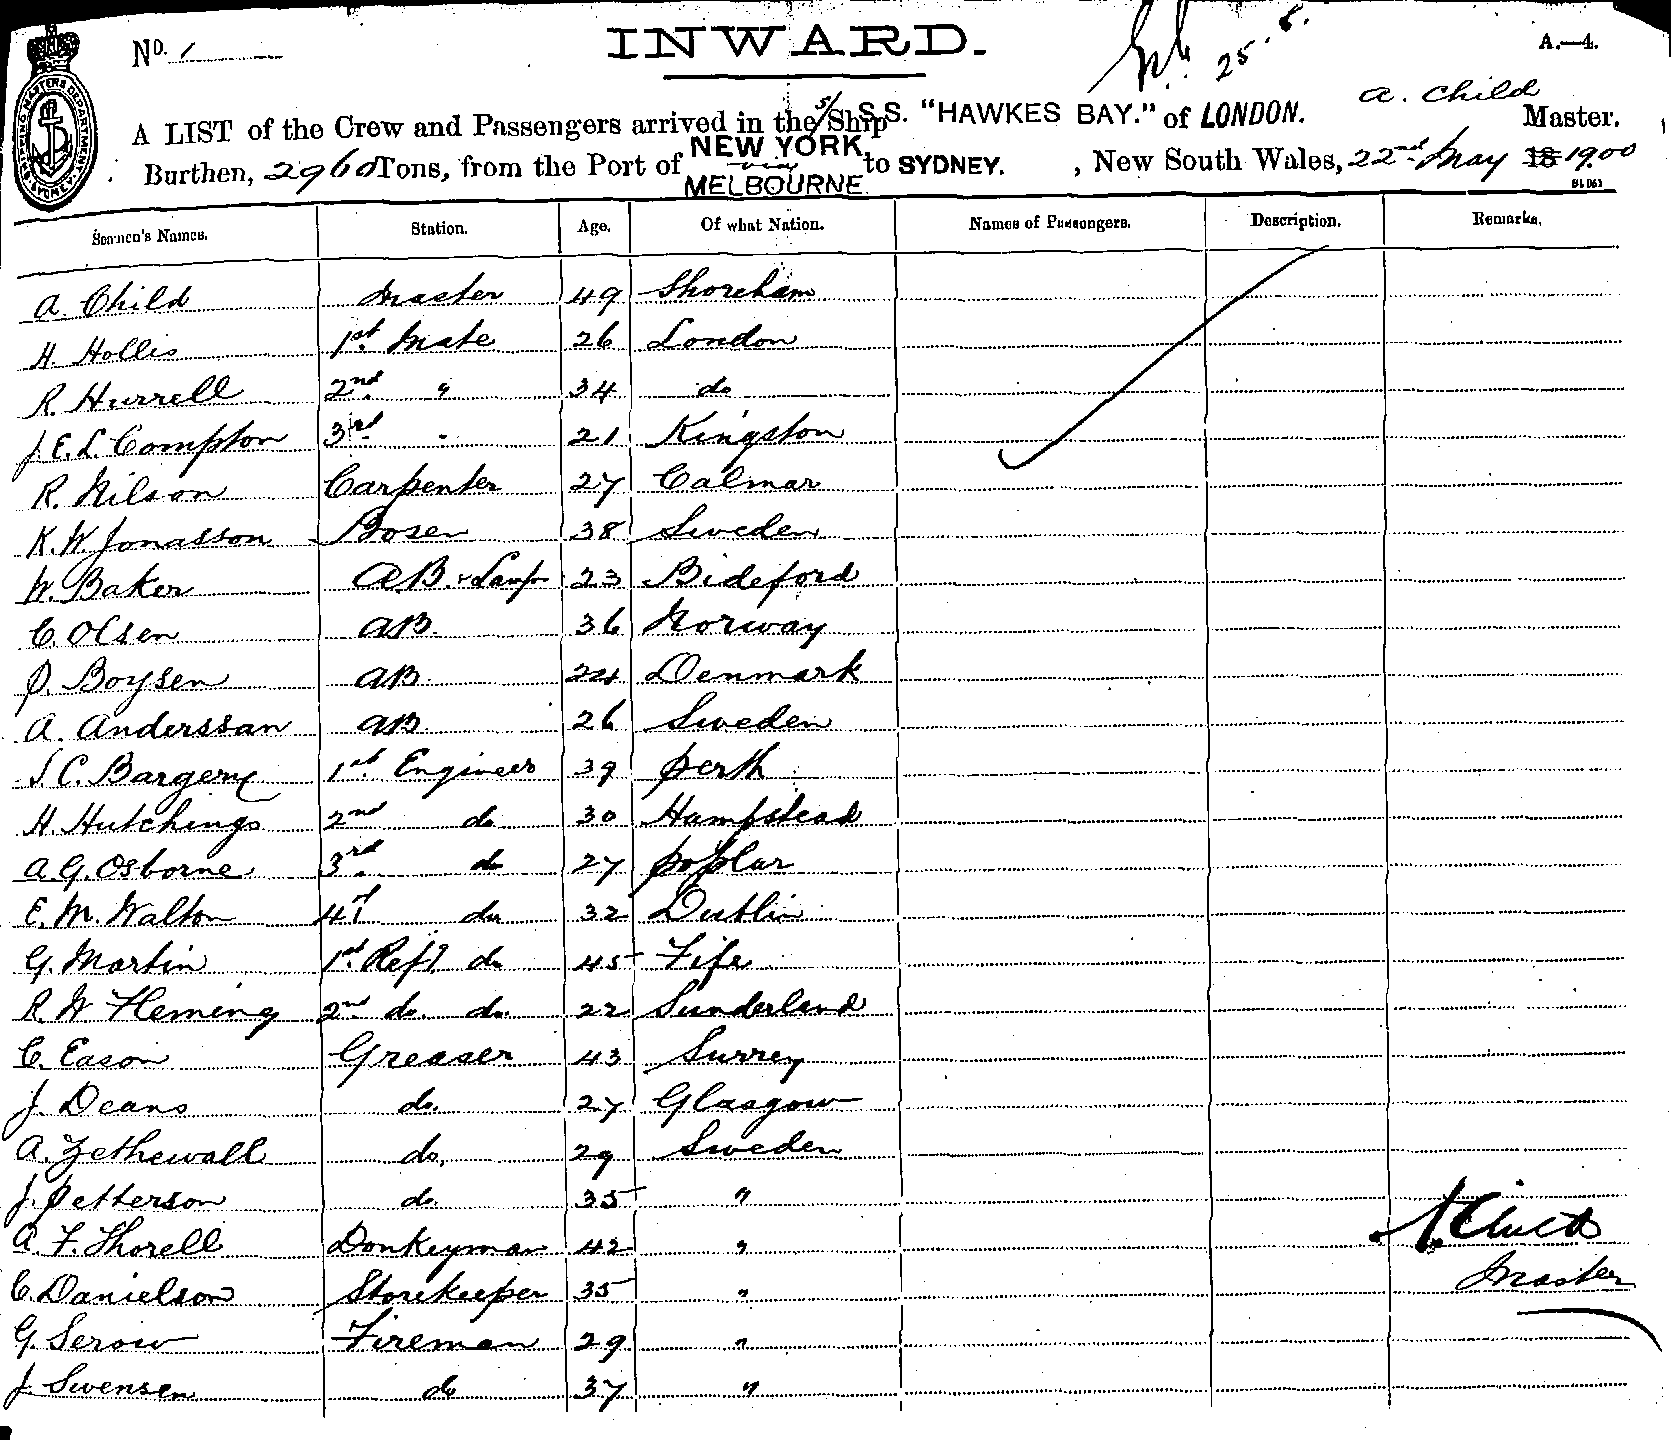 No. 1
INWARD.
25.5.
A.—4.
SHIPPING MASTERS DEPARTMENT SYDNEY
A LIST of the Crew and Passengers arrived in the s/Ship S.S. "HAWKES BAY." of LONDON. A. Child Master.
Burthen, 2960 Tons, from the Port of NEW YORK via MELBOURNE to SYDNEY. , New South Wales, 22nd May 18 1900
Seamen's Names. Station. Age. Of what Nation. Names of Passengers. Description. Remarks.
A. Child Master 49 Shoreham
H. Hollis 1st Mate 26 London
R. Hurrell 2nd " 34 do
J. E. L. Compton 3rd " 21 Kingston
R. Nilson Carpenter 27 Calmar
K. W. Jonasson Bosen 38 Sweden
W. Baker AB. & Lamp 23 Bideford
C. Olsen AB. 36 Norway
P. Boysen AB. 24 Denmark
A. Anderssan AB 26 Sweden
1st Engineer 39 Perth
H. Hutchings 2nd do 30 Hampstead
A. G. Osborne 3rd do 27 Poplar
E. M. Walton 4th do 32 Dublin
G. Martin 1st Refg do 45 Fife
R. W. Fleming 2nd do. do. 22 Sunderland
C. Eason Greaser 43 Surrey
J. Deans do. 27 Glasgow
A. Zethewall do. 29 Sweden
J. Petterson do. 35 "
A. F. Thorell Donkeyman 42 "
C. Danielson Storekeeper 35 "
G. Serow Fireman 29 "
J. Swensen do 37 "
A. Child
Master